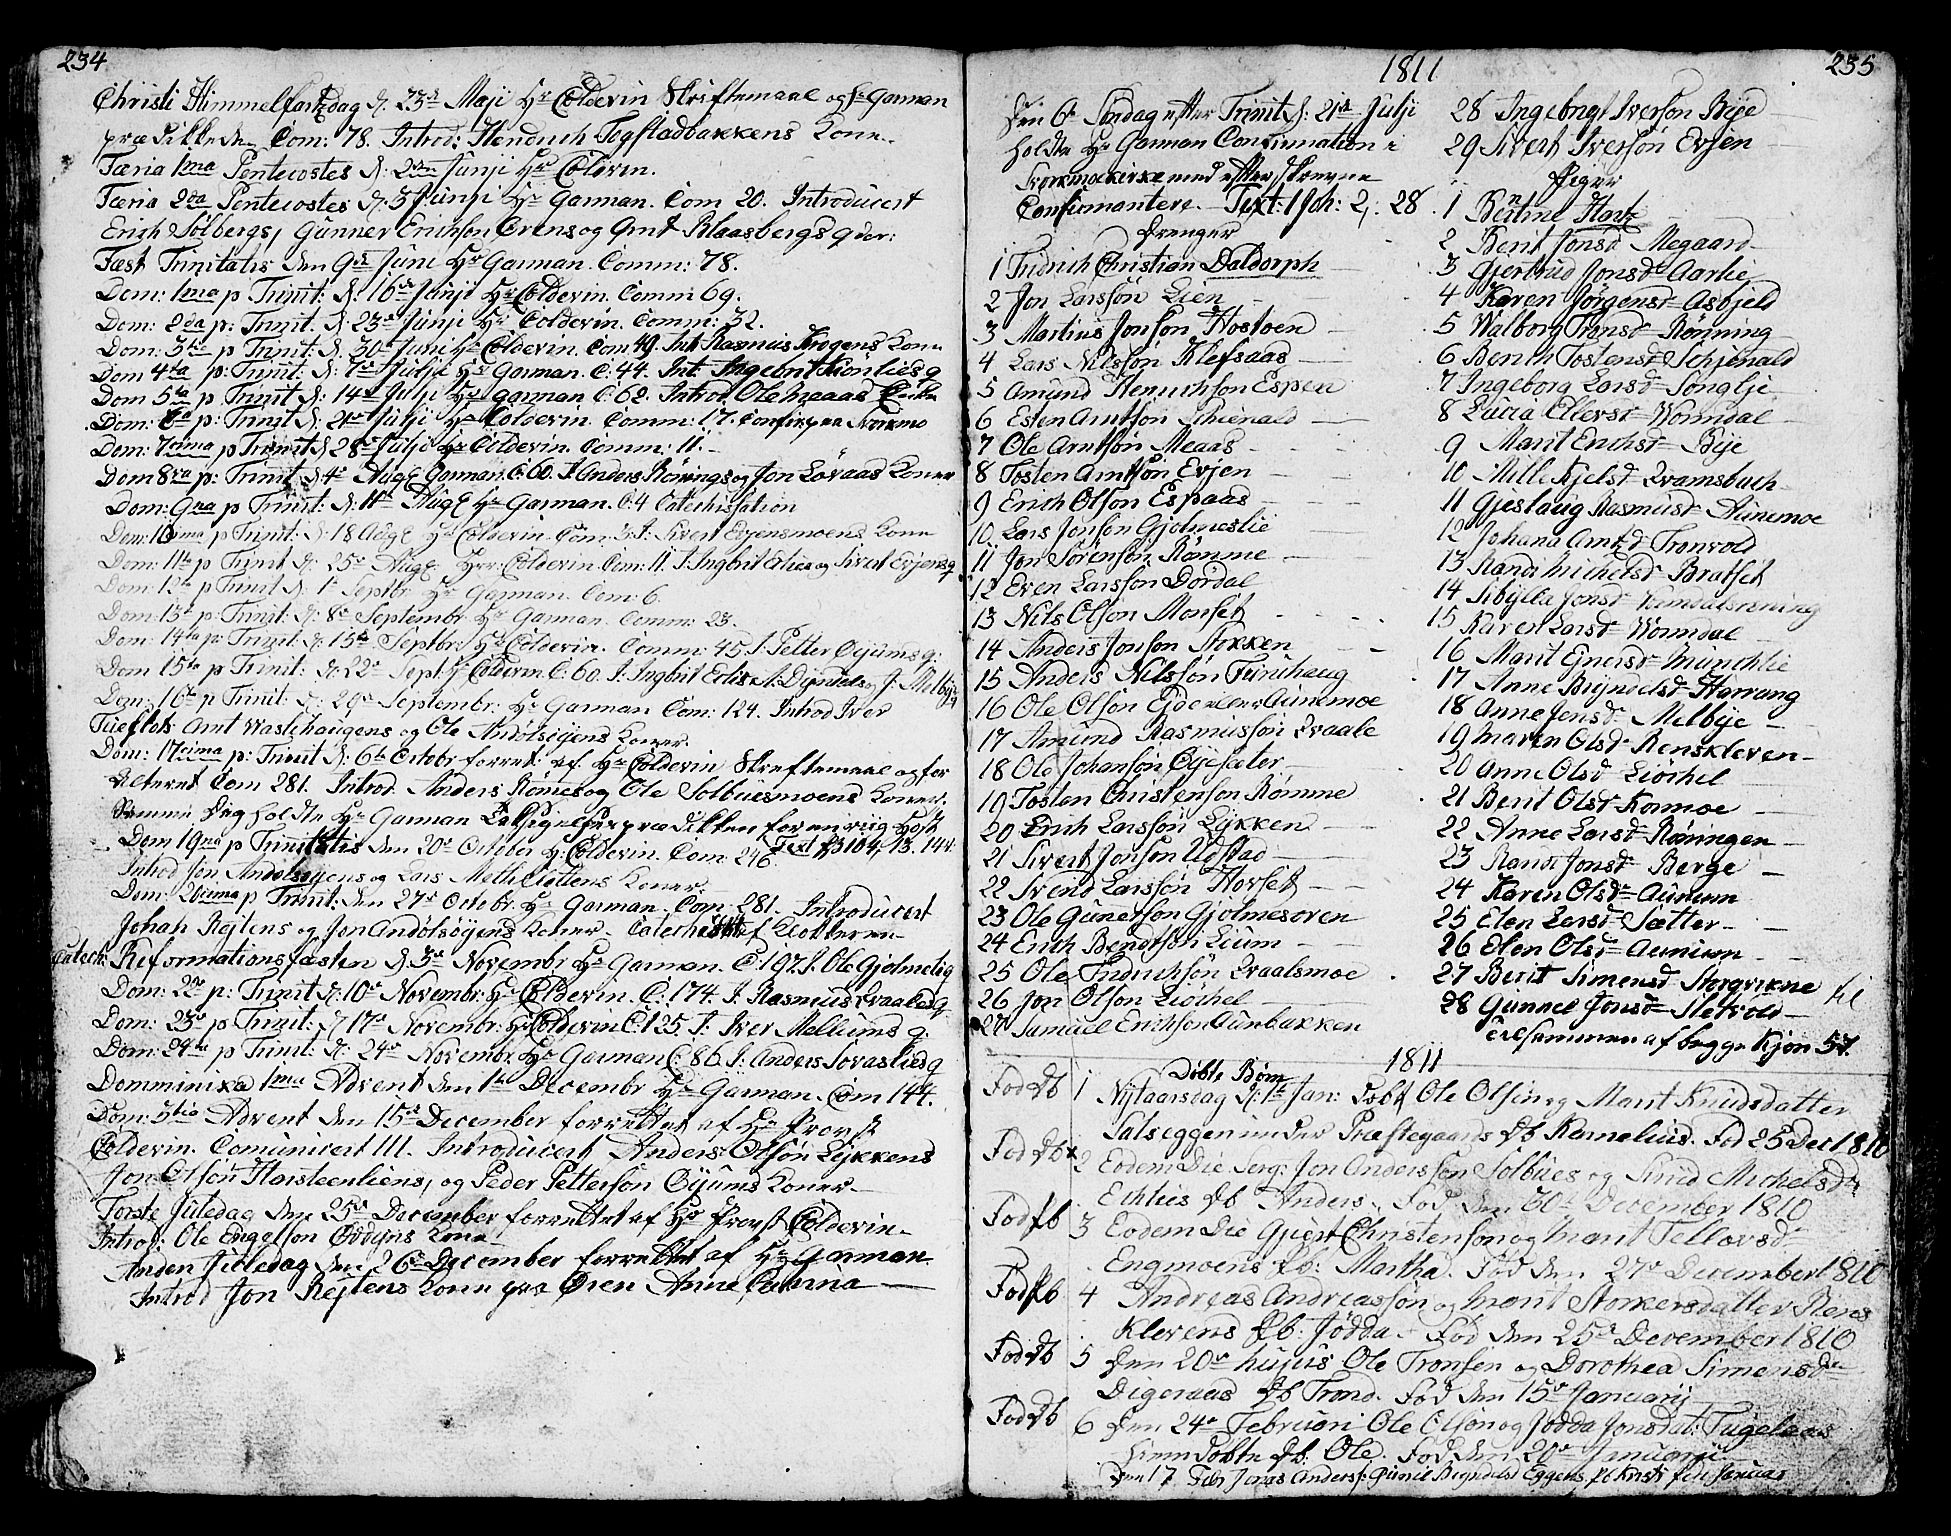 234
Christi Himmelfartzdag d. 23d Maji Hr Colderin Skriftemaal og Hr Garman
prædikkede Com: 78. Introd: Hendrich Togstadbakkens Kone
Færia 1ma Pentecostes d: 2den Junji Hr Colderin.
Færia 2da Pentecostes d: 3 Junji Hr Garman. Com 20. Introducert
Erich Solbergs, Gunner Erichson Orens og Arnt Blaasbergs qver:
Fæst Trinitatis den 9de Juni Hr Garman. Comm: 78.
Dom: 1ma p Trinit: d: 16de Junji Hr Colderin. Comm: 69.
Dom: 2da p: Trinit: d. 23de Junji Hr Colderin. Comm: 32.
Dom: 3tia p Trinit: d. 30te Juni Hr Colderin. Com 49. Int Rasmus Krogens Kone
Dom 4ta p: Trinit: d. 7de Julji Hr Garman. C: 44. Int. Ingebrit Lionlies q
Dom 5ta p Trinit d: 14de Julji Hr Garman C: 62. Introd Ole Meaas Enke
Dom: 6ta p: Trinit d: 21de Julji Hr Colderin. Comm: 17. Confirm: paa Norkmo
Dom: 7cima p Trinit d 28de Julji Hr Colderin. Comm: 11.
Dom 8va p: Trinit: d 4de Aug Garman. C: 60. I. Anders Rønings og Jon Løvaas Koner
Dom: 9na p Trinit: d: 11te Aug Hr Garman. C: 4 Catechisation
Dom: 10cima p Trinit: d. 18 Aug Hr Colderin. Com: 3: I: Sivert Evjensmoens Kone
Dom: 11te p Trinit d: 25de Aug Hr: Colderin. Com: 11. I. Ingbrit Erlies og Sivert Evjens q
Dom: 12te p Trinit d. 1te Septbr Hr Garman. Com: 6.
Dom: 13de p: Trinit: d: 8de Septembr Hr Garman. Comm: 23.
Dom: 14ta p: Trinit: d: 15de Septbr: Hr Colderin. Comm: 45 I: Petter Øyums q:
Dom 15ta p Trinit: d: 22de Sept: Hr Colderin. C: 60. I. Ingbrit Erlis
Dom: 16ta p Trinit: d: 29de Septembr: Hr Garman Com: 124. Introd Iver
Tueflots Arnt Wasliehaugens og Ole Andølsøiens Koner.
Dom: 17cima p: Trinit d: 6te Octobr forret: af Hr Colderin Skreftemaal og for
Alteret Com 281. Introd: Anders Rømes og Ole Solbuesmoens Koner.
Samme Dag holdte Hr Garman Velsignelses prædikken for en riig Høst
Dom 19na p Trinitatis den 20de October H: Colderin. Com: 246. Text ps 104, 13. 14 v.
Introd Jon Andølsøyens og Lars Methliettens Koner.
Dom: 20cima p Trinit: den 27de Octobr: Hr Garman. Com: 281. Introducert
Johan Rejtens og Jon Andølsøyens Koner. Catechisert af Klokkeren
Catech: Reformationsfæsten d 3de Novembr Hr Garman. C: 197. I. Ole Gjølmelig
Dom: 22de p: Trinit d: 10de Novembr: Hr Colderin. C: 174. I. Rasmus Qvaales q
Dom: 23de p Trinit: d 17de Novembr: Hr Colderin C: 125. I: Iver Mellums q.
Dom: 24ta p Trinit: d: 24de Novembr. Hr Garman C: 86. I: Anders Lovaslies q
Domminica 1ma Advent den 1te Decembr Hr Garman. Com 144.
Dom: 3tia Advent den 15de December forrettet af Hr Provst
Colderin. Comunicert 111. Introducert Anders Olsøn Lykkens
Jon Olsøn Harsteenliens, og Peder Pettersøn Øyums Koner
Første Juledag den 25de December forrettet af Hr Provst Colderin.
Introd: Ole Engelson Ovdyns Kone
Anden Juledag den 26de December forrettet af Hr Garman
Introd Jon Rejtens Kone paa Øien Anne Catrina
1811
235
Den 6te Søndag efter Trinit d: 21de Julji
holdte Hr Garman Confirmation i
Norkmokirke med efterskrevne
Confirmantere. Text: 1 Joh: 2, 28.
Drenger
1 Fridrich Christian Daldorph
2 Jon Larssøn Lien
3 Martius Jonsøn Hostoen
4 Lars Nilssøn Klefsaas
5 Amund Henrichson Espen
6 Esten Arntsøn Schienald
7 Ole Arntsøn Meaas
8 Tosten Arntsøn Evjen
9 Erich Olsøn Espaas
10 Lars Jonsøn Gjolmeslie
11 Jon Sørensøn Rømme
12 Even Larssøn Dordal
13 Nils Olsøn Monset
14 Anders Jonsøn Stokken
15 Anders Nilssøn Furuhaug
16 Ole Olsøn Aunemoe
17 Amund Rasmussøn Qvaale
18 Ole Johansøn Øyesæter
19 Tosten Christenson Rømme
20 Erich Larssøn Lykken
21 Sivert Jonsøn Udstad
22 Svend Larssøn Horset
23 Ole Gunersøn Gjolmesoren
24 Erich Bendtsøn Lium
25 Ole Fridrichsøn Qvaalsmoe
26 Jon Olsøn Liøchel
27 Samuel Erichsøn Aunbakken
28 Ingebrigt Iversøn Bye
29 Sivert Iversøn Evjen
Piger
1 Bertine Hartz
2 Berit Jonsd Megaard
3 Gjertrud Jonsd Aarlie
4 Karen Jørgensd Asbjeld
5 Walborg Tronsd Rønning
6 Berith Tostensd Schjenald
7 Ingeborg Larsd Songlie
8 Lucia Ellevsd Wormdal
9 Marit Erichsd Bye
10 Mille Kjelsd Qvamsbach
11 Gjeslaug Rasmusd Aunemoe
12 Johana Arntsd Tronvold
13 Randi Michelsd Bratset
14 Sibylla Jonsd
15 Karen Larsd Wormdal
16 Marit Ejnersd Munchlie
17 Anne Bryndelsd Harrang
18 Anne Jensd Melbye
19 Maren Olsd Renskleven
20 Anne Olsd Liøchel
21 Berit Olsd Kormoe
22 Anne Larsd Røningen
23 Randi Jonsd Berge
24 Karen Olsd Aunium
25 Elen Larsd Sætter
26 Elen Olsd Aunium
27 Berit Simensd Storqvikne
28 Gunnel Jonsd Sletvold
tilsammen af begge Kjøn 57.
1811
Døbte Børn
Fod Db 1 Nytaarsdag d: 1te Jan: Døbt Ole Olsen og Marit Knudsdatter
Salseggen under Præstegaards Db Kornelius. Fod 25 Decb 1810
Fod Db 2 Eodem Die Serg: Jon Anderssøn Solbues og Gurid Michelsd
Echties Db Anders. Fod den 30te December 1810
Fod fb 3 Eodem Die Gjert Christenson og Marit Tellovsd
Engmoens Pb: Martha. Fod den 27de December 1810
Fod fb 4 Andreas Andreassøn og Marit Storkersdatter Rens
Klevens Pb: Jødda. Fød den 25de December 1810
Fod Db 5 Den 20de hujus Ole Tronsen og Dorothea Simensd
Digeraas Db Trond. Fod den 15de Januarij
Fod Db 6 Den 24de Februari Ole Olsøn og Jødda Jonsdat: Fugelaas
hiemdøbte Db: Ole. Fød den 20de Januarji
Den 17 Febr Jonas Anders: Gunil Bryndelsd Eggens Pb Kirsti fød Januar